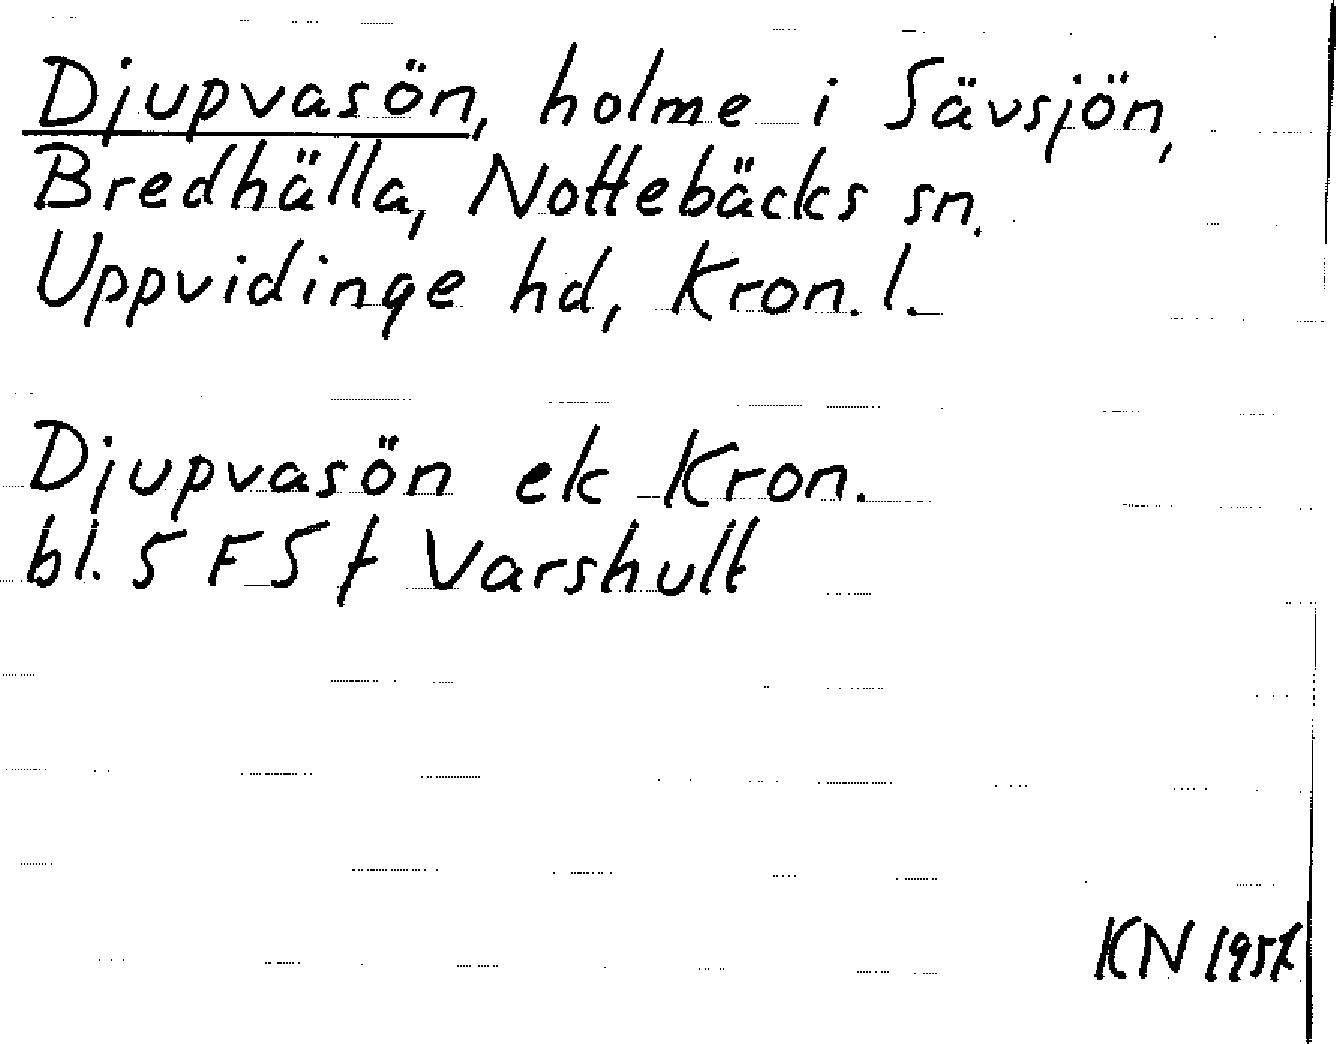 Djupvasön, holme i Sävsjön,
Bredhälla, Nottebäcks sn.
Uppvidinge hd, Kron. l.
Djupvasön ek Kron.
bl. 5 F S f Varshult
KN 1957